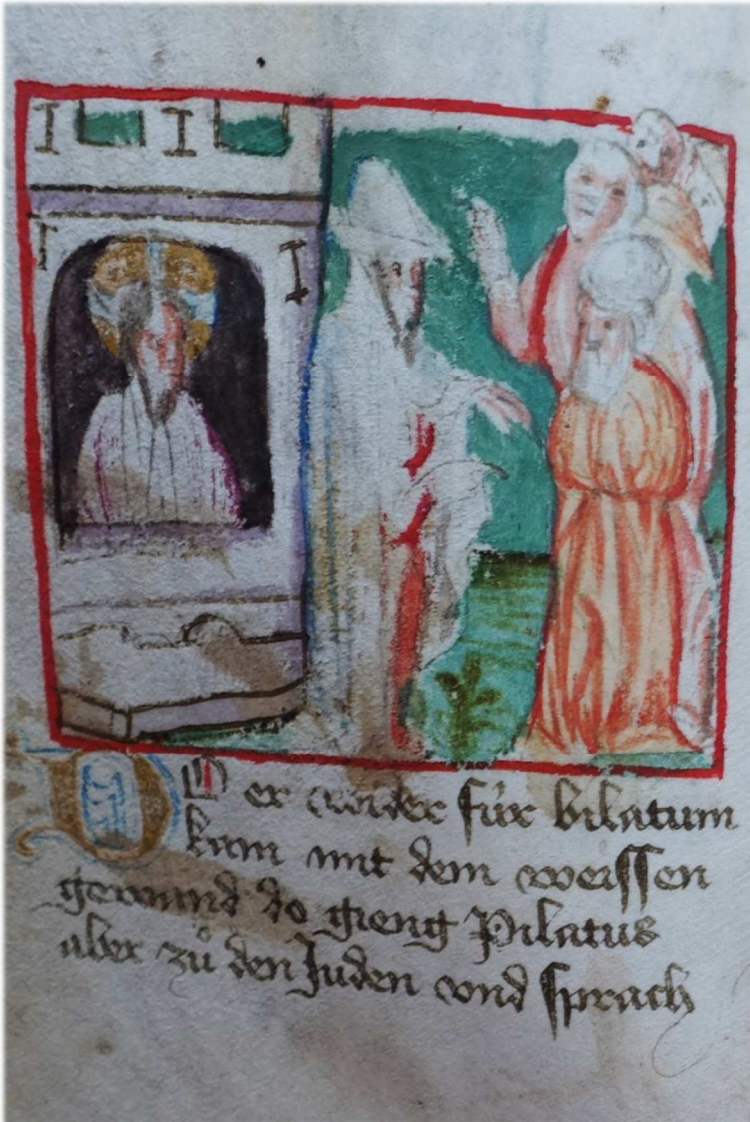 DO er wider für bilatum
kam mit dem weissen
gewannd do gieng Pilatus
aber zů den Juden vnd sprach